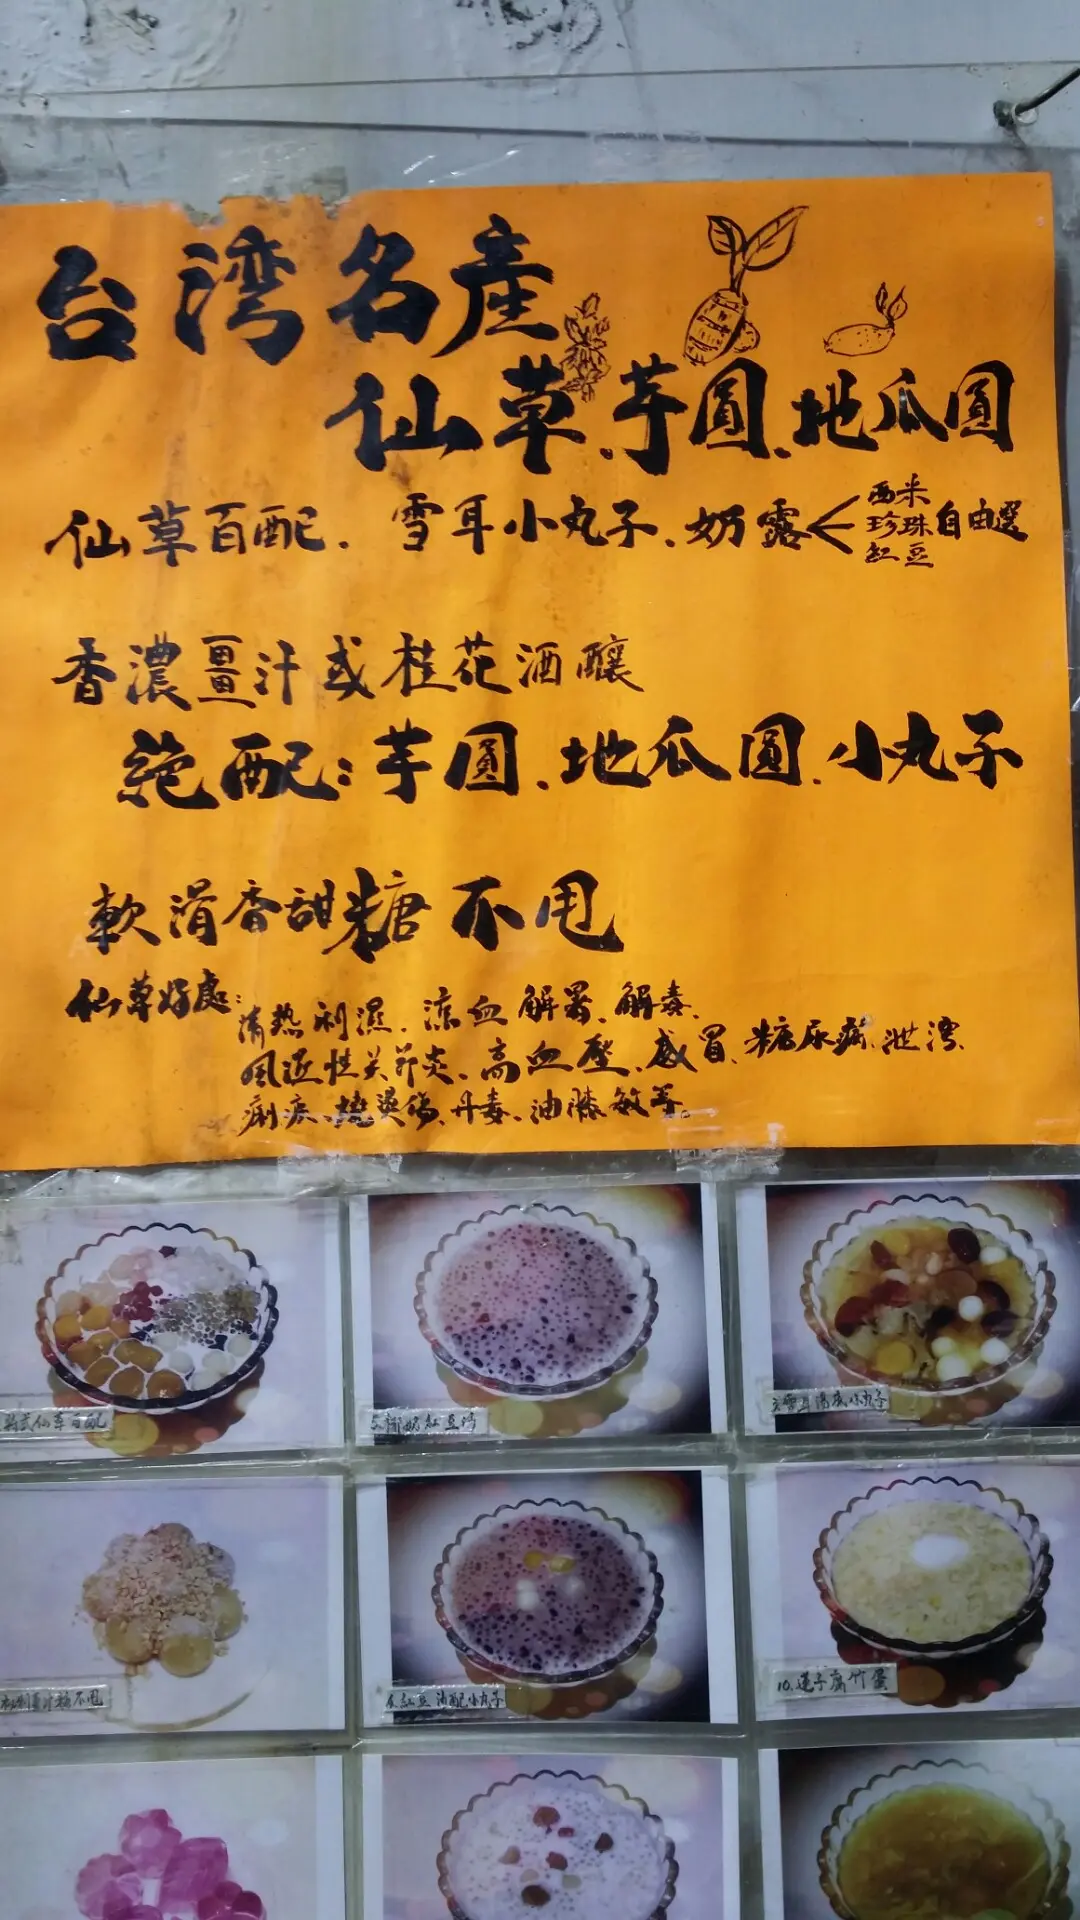 台湾名產
仙草.芋圓.地瓜圓
仙草百配.雪耳小丸子.奶露<西米 珍珠 紅豆 自由選
香濃薑汁或桂花酒釀
絕配:芋圓.地瓜圓.小丸子
軟滑香甜糖不甩
仙草好處:清热利濕.涼血解暑.解毒.
風湿性关節炎.高血壓.感冒.糖尿病.泄瀉.
痢疾.燒燙傷.丹毒.油漆敏等.
仙草百配
椰奶紅豆
雪耳湯底小丸子
薑汁糖不甩
紅豆沙配小丸子
10.蓮子腐竹蛋